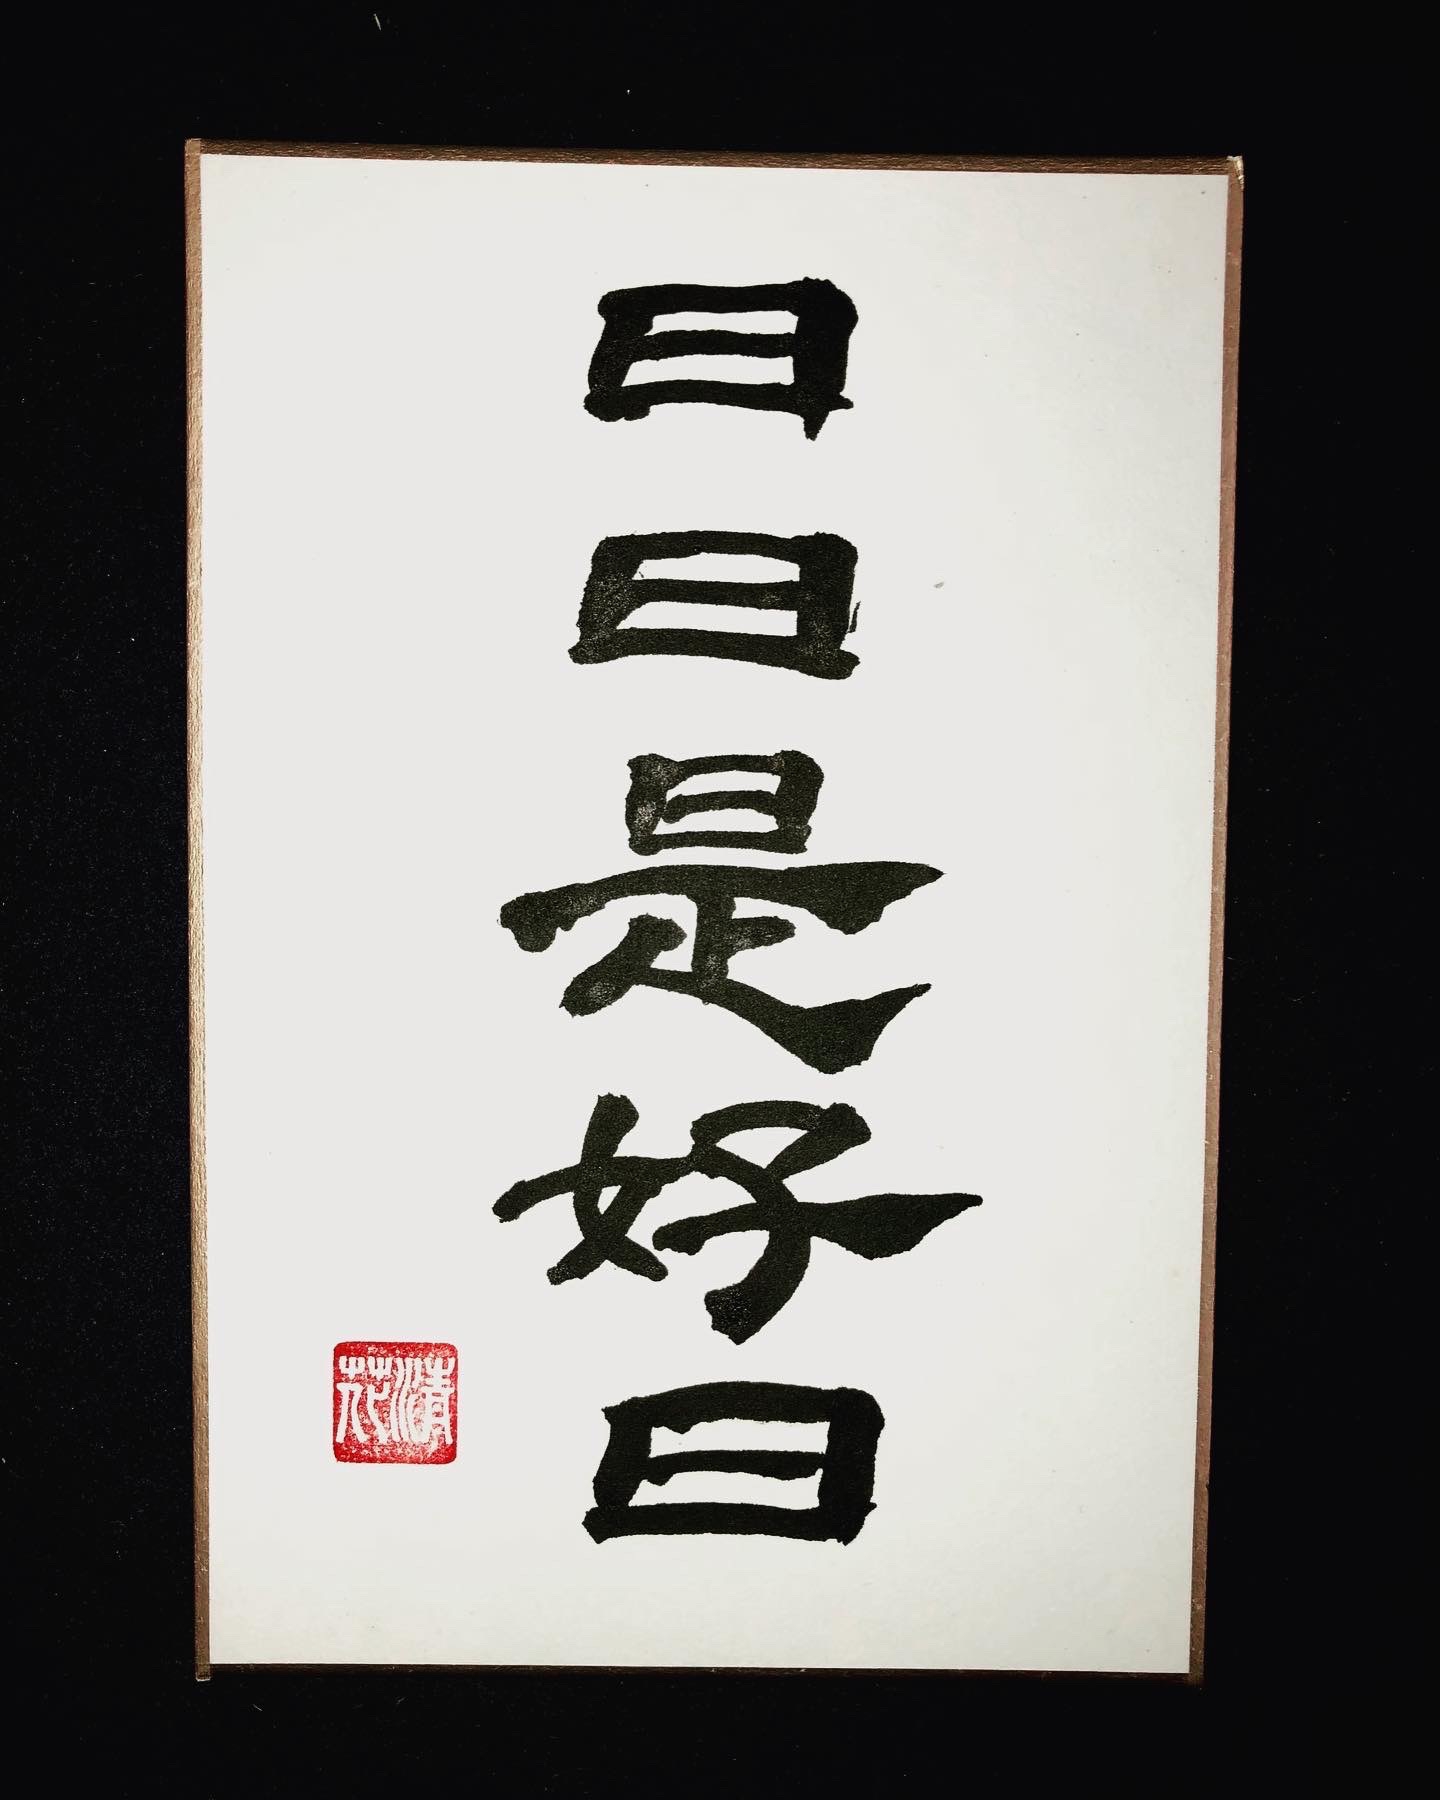 日日是好日
清花